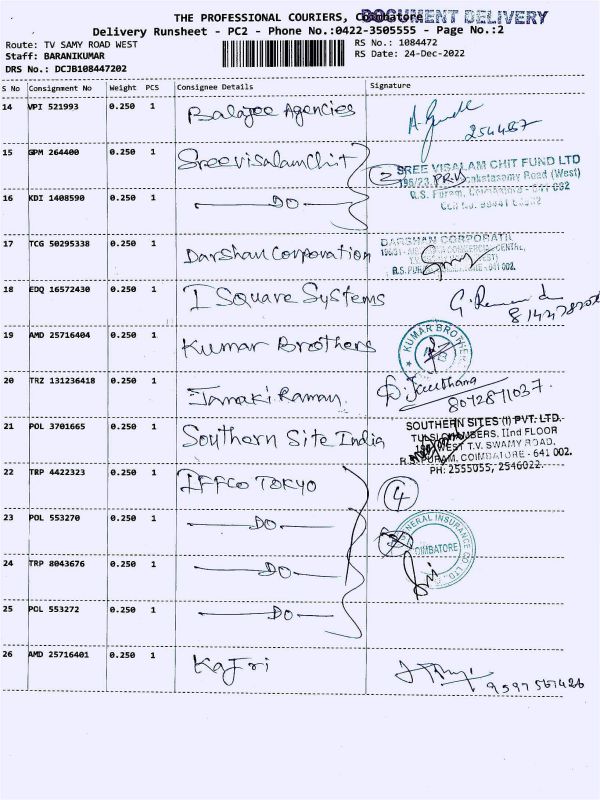 THE PROFESSIONAL COURIERS, Coimbatore
DOCUMENT DELIVERY
Delivery Runsheet - PC2 - Phone No.:0422-3505555 - Page No.:2
Route: TV SAMY ROAD WEST
RS No.: 1084472
Staff: BARANIKUMAR
RS Date: 24-Dec-2022
DRS No.: DCJB108447202
S No Consignment No Weight PCS Consignee Details Signature
14 VPI 521993 0.250 1 Balajee Agencies
254487
15 GPM 264400 0.250 1 Sree visalam Chit
2 SREE VISALAM CHIT FUND LTD
Road (West)
16 KDI 1408590 0.250 1 DO
R.S. Puram, Coimbatore - 641 002
17 TCG 50295338 0.250 1 Darshan Corporation
DARSHAN CORPORATI
641 002.
18 EDQ 16572430 0.250 1 I Square Systems
19 AMD 25716404 0.250 1 Kumar Brothers
KUMAR BROTHER
20 TRZ 131236418 0.250 1 Janaki Raman
8072871037.
21 POL 3701665 0.250 1 Southern Site India
SOUTHERN SITES (I) PVT. LTD.
TULSI CHAMBERS, IInd FLOOR
WEST T.V. SWAMY ROAD,
R.S. PURAM, COIMBATORE - 641 002.
PH: 2555055, 2546022.
22 TRP 4422323 0.250 1 IFFCO TOKYO
4
23 POL 553270 0.250 1 DO
GENERAL INSURANCE CO. LTD.
COIMBATORE
24 TRP 8043676 0.250 1 DO
25 POL 553272 0.250 1 DO
26 AMD 25716401 0.250 1 Kajri
9597567426